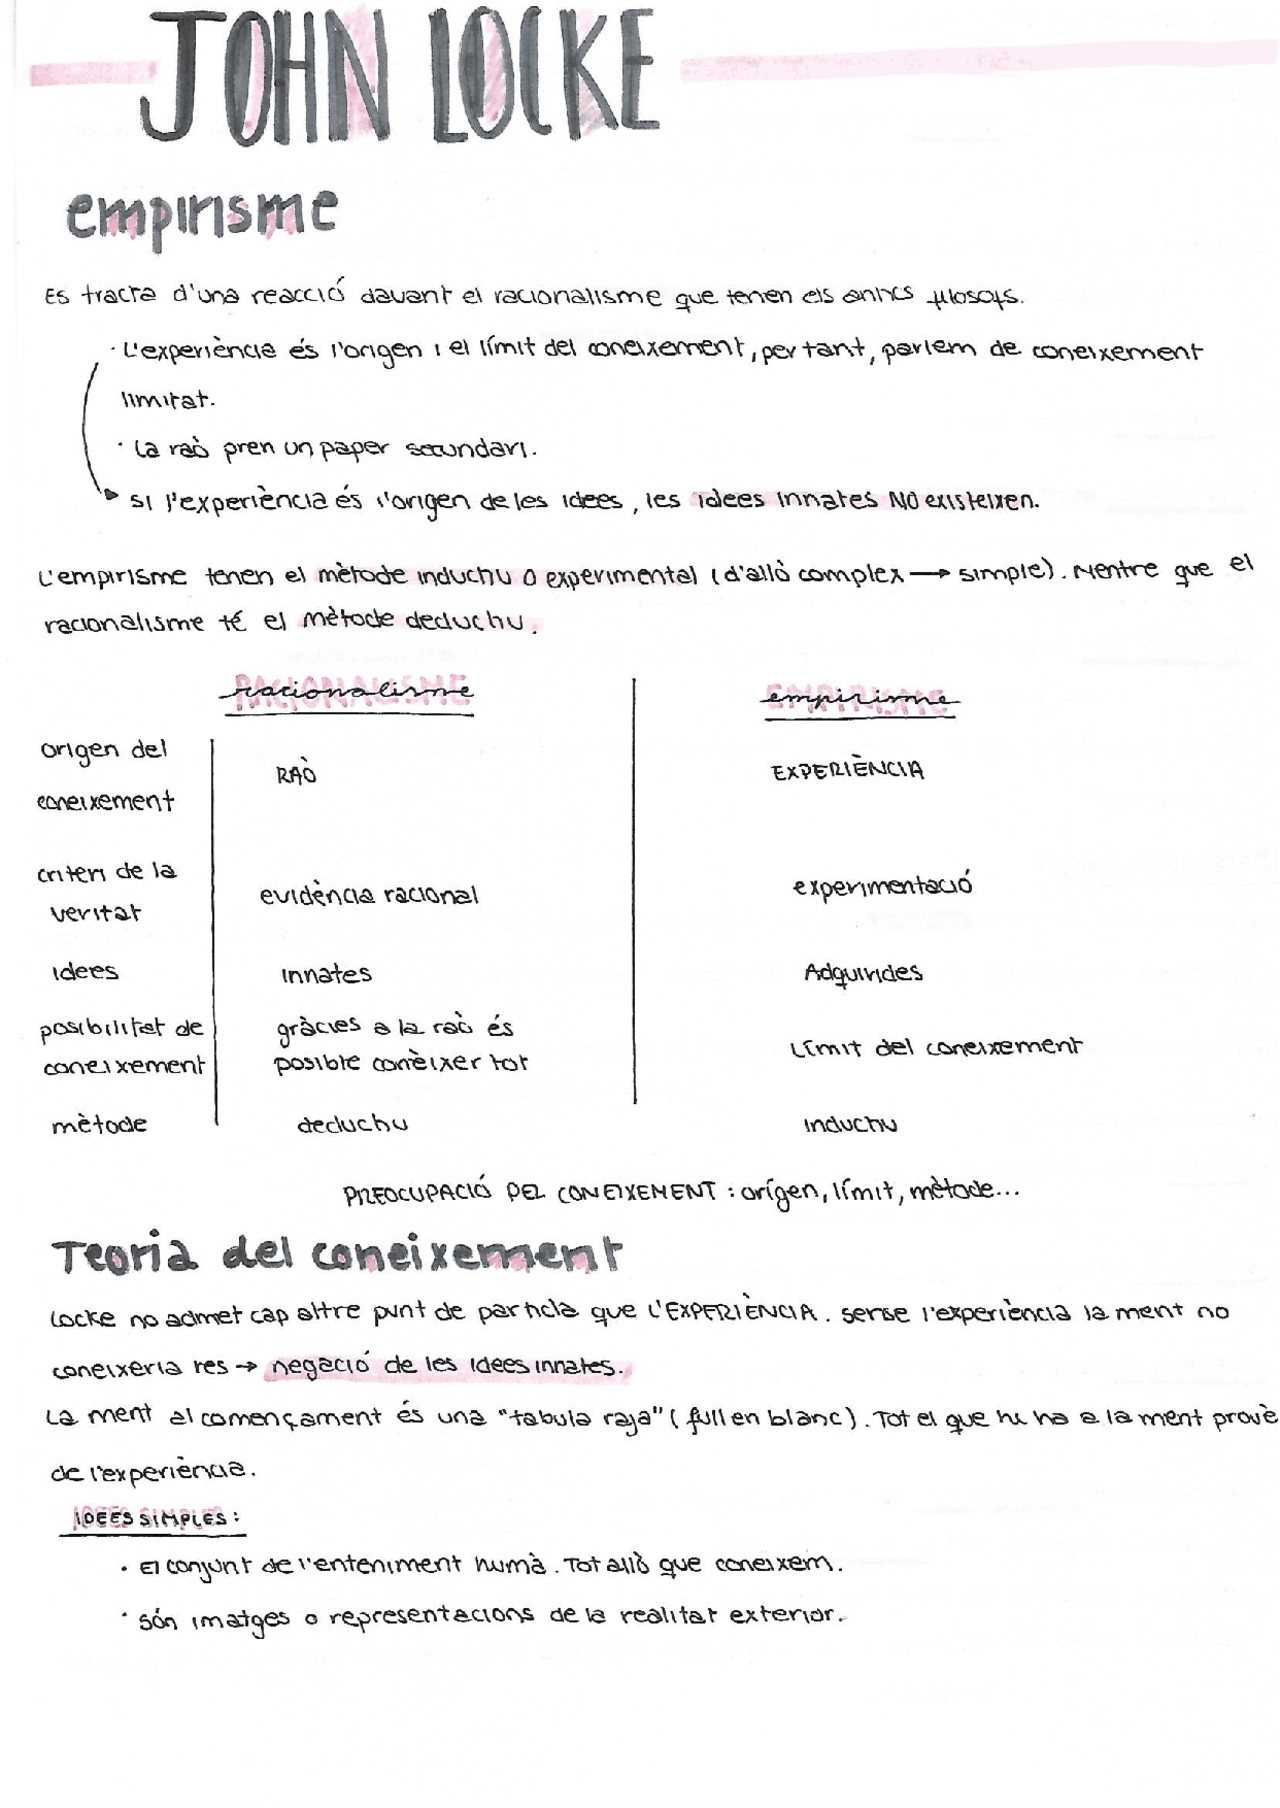 JOHN LOCKE
empirisme
Es tracta d'una reacció davant el racionalisme que tenen els antics filosofs.
· L'experiència és l'origen i el límit del coneixement, per tant, parlem de coneixement
limitat.
· La raò pren un paper secundari.
Si l'experiència és l'origen de les idees, les idees innates NO existeixen.
L'empirisme tenen el mètode inductiu o experimental (d'allò complex → simple). Mentre que el
racionalisme té el mètode deductiu.
racionalisme empirisme
origen del
coneixement
RAÒ EXPERIÈNCIA
criteri de la
veritat
evidència racional experimentació
idees innates Adquirides
posibilitat de
coneixement
gràcies a la raò és
posible conèixer tot
Límit del coneixement
mètode deductiu inductiu
PREOCUPACIÓ DEL CONEIXEMENT: orígen, límit, mètode...
Teoria del coneixement
Locke no admet cap altre punt de partida que L'EXPERIÈNCIA. sense l'experiència la ment no
coneixeria res → negació de les idees innates.
La ment al començament és una "tabula raja" (full en blanc). Tot el que hi ha a la ment provè
de l'experiència.
IDEES SIMPLES:
· El conjunt de l'enteniment humà. Tot allò que coneixem.
· són imatges o representacions de la realitat exterior.